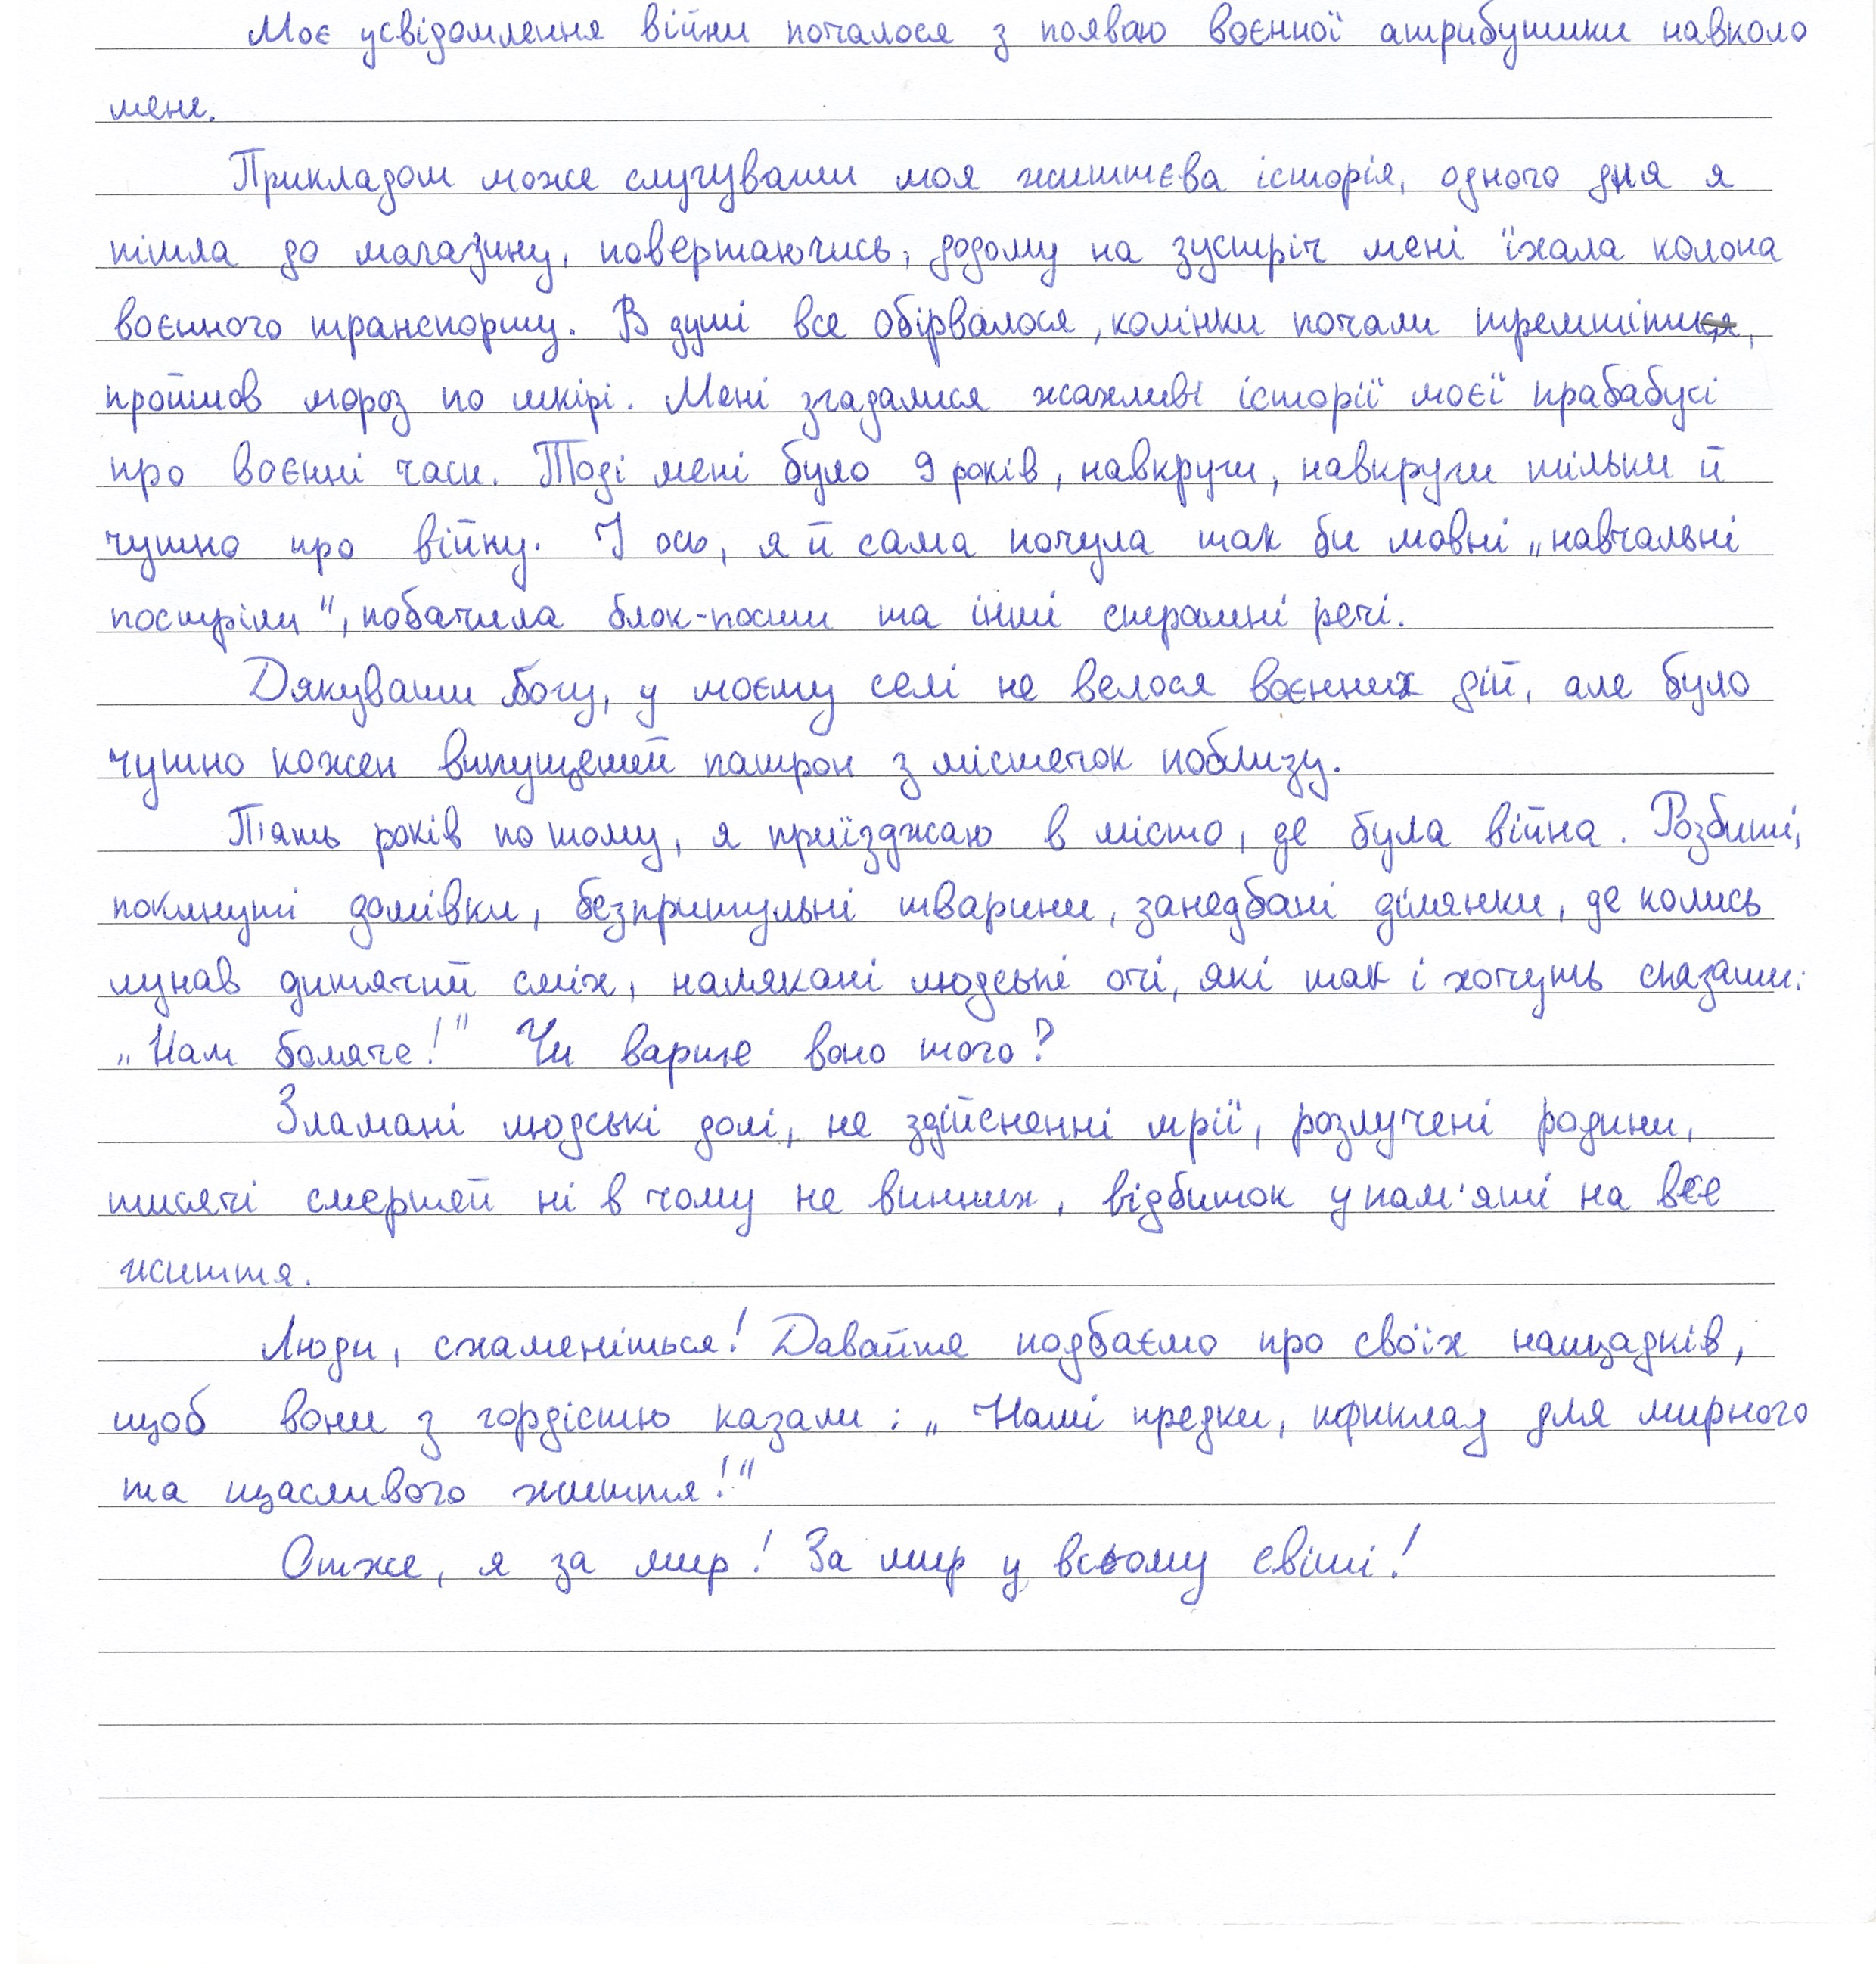 Моє усвідомлення війни почалося з появою воєнної атрибутики навколо
мене.
Прикладом може слугувати моя життєва історія, одного дня я
пішла до магазину, повертаючись, додому на зустріч мені їхала колона
воєнного транспорту. В душі все обірвалося, колінки почали тремтіти,
пройшов мороз по шкірі. Мені згадалися жахливі історії моєї прабабусі
про воєнні часи. Тоді мені було 9 років, навкруги, навкруги тільки й
чутно про війну. І ось, я й сама почула так би мовні „навчальні
постріли", побачила блок-пости та інші страшні речі.
Дякувати богу, у моєму селі не велося воєнних дій, але було
чутно кожен випущений патрон з містечок поблизу.
П'ять років по тому, я приїзджаю в місто, де була війна. Розбиті,
покинуті домівки, безпритульні тварини, занедбані ділянки, де колись
лунав дитячий сміх, налякані людські очі, які так і хочуть сказати:
„Нам боляче!" Чи варте воно того?
Зламані людські долі, не здійсненні мрії, розлучені родини,
тисячі смертей ні в чому не винних, відбиток у пам'яті на все
життя.
Люди, схаменіться! Давайте подбаємо про своїх нащадків,
щоб вони з гордістю казали: „Наші предки, приклад для мирного
та щасливого життя!"
Отже, я за мир! За мир у всьому світі!